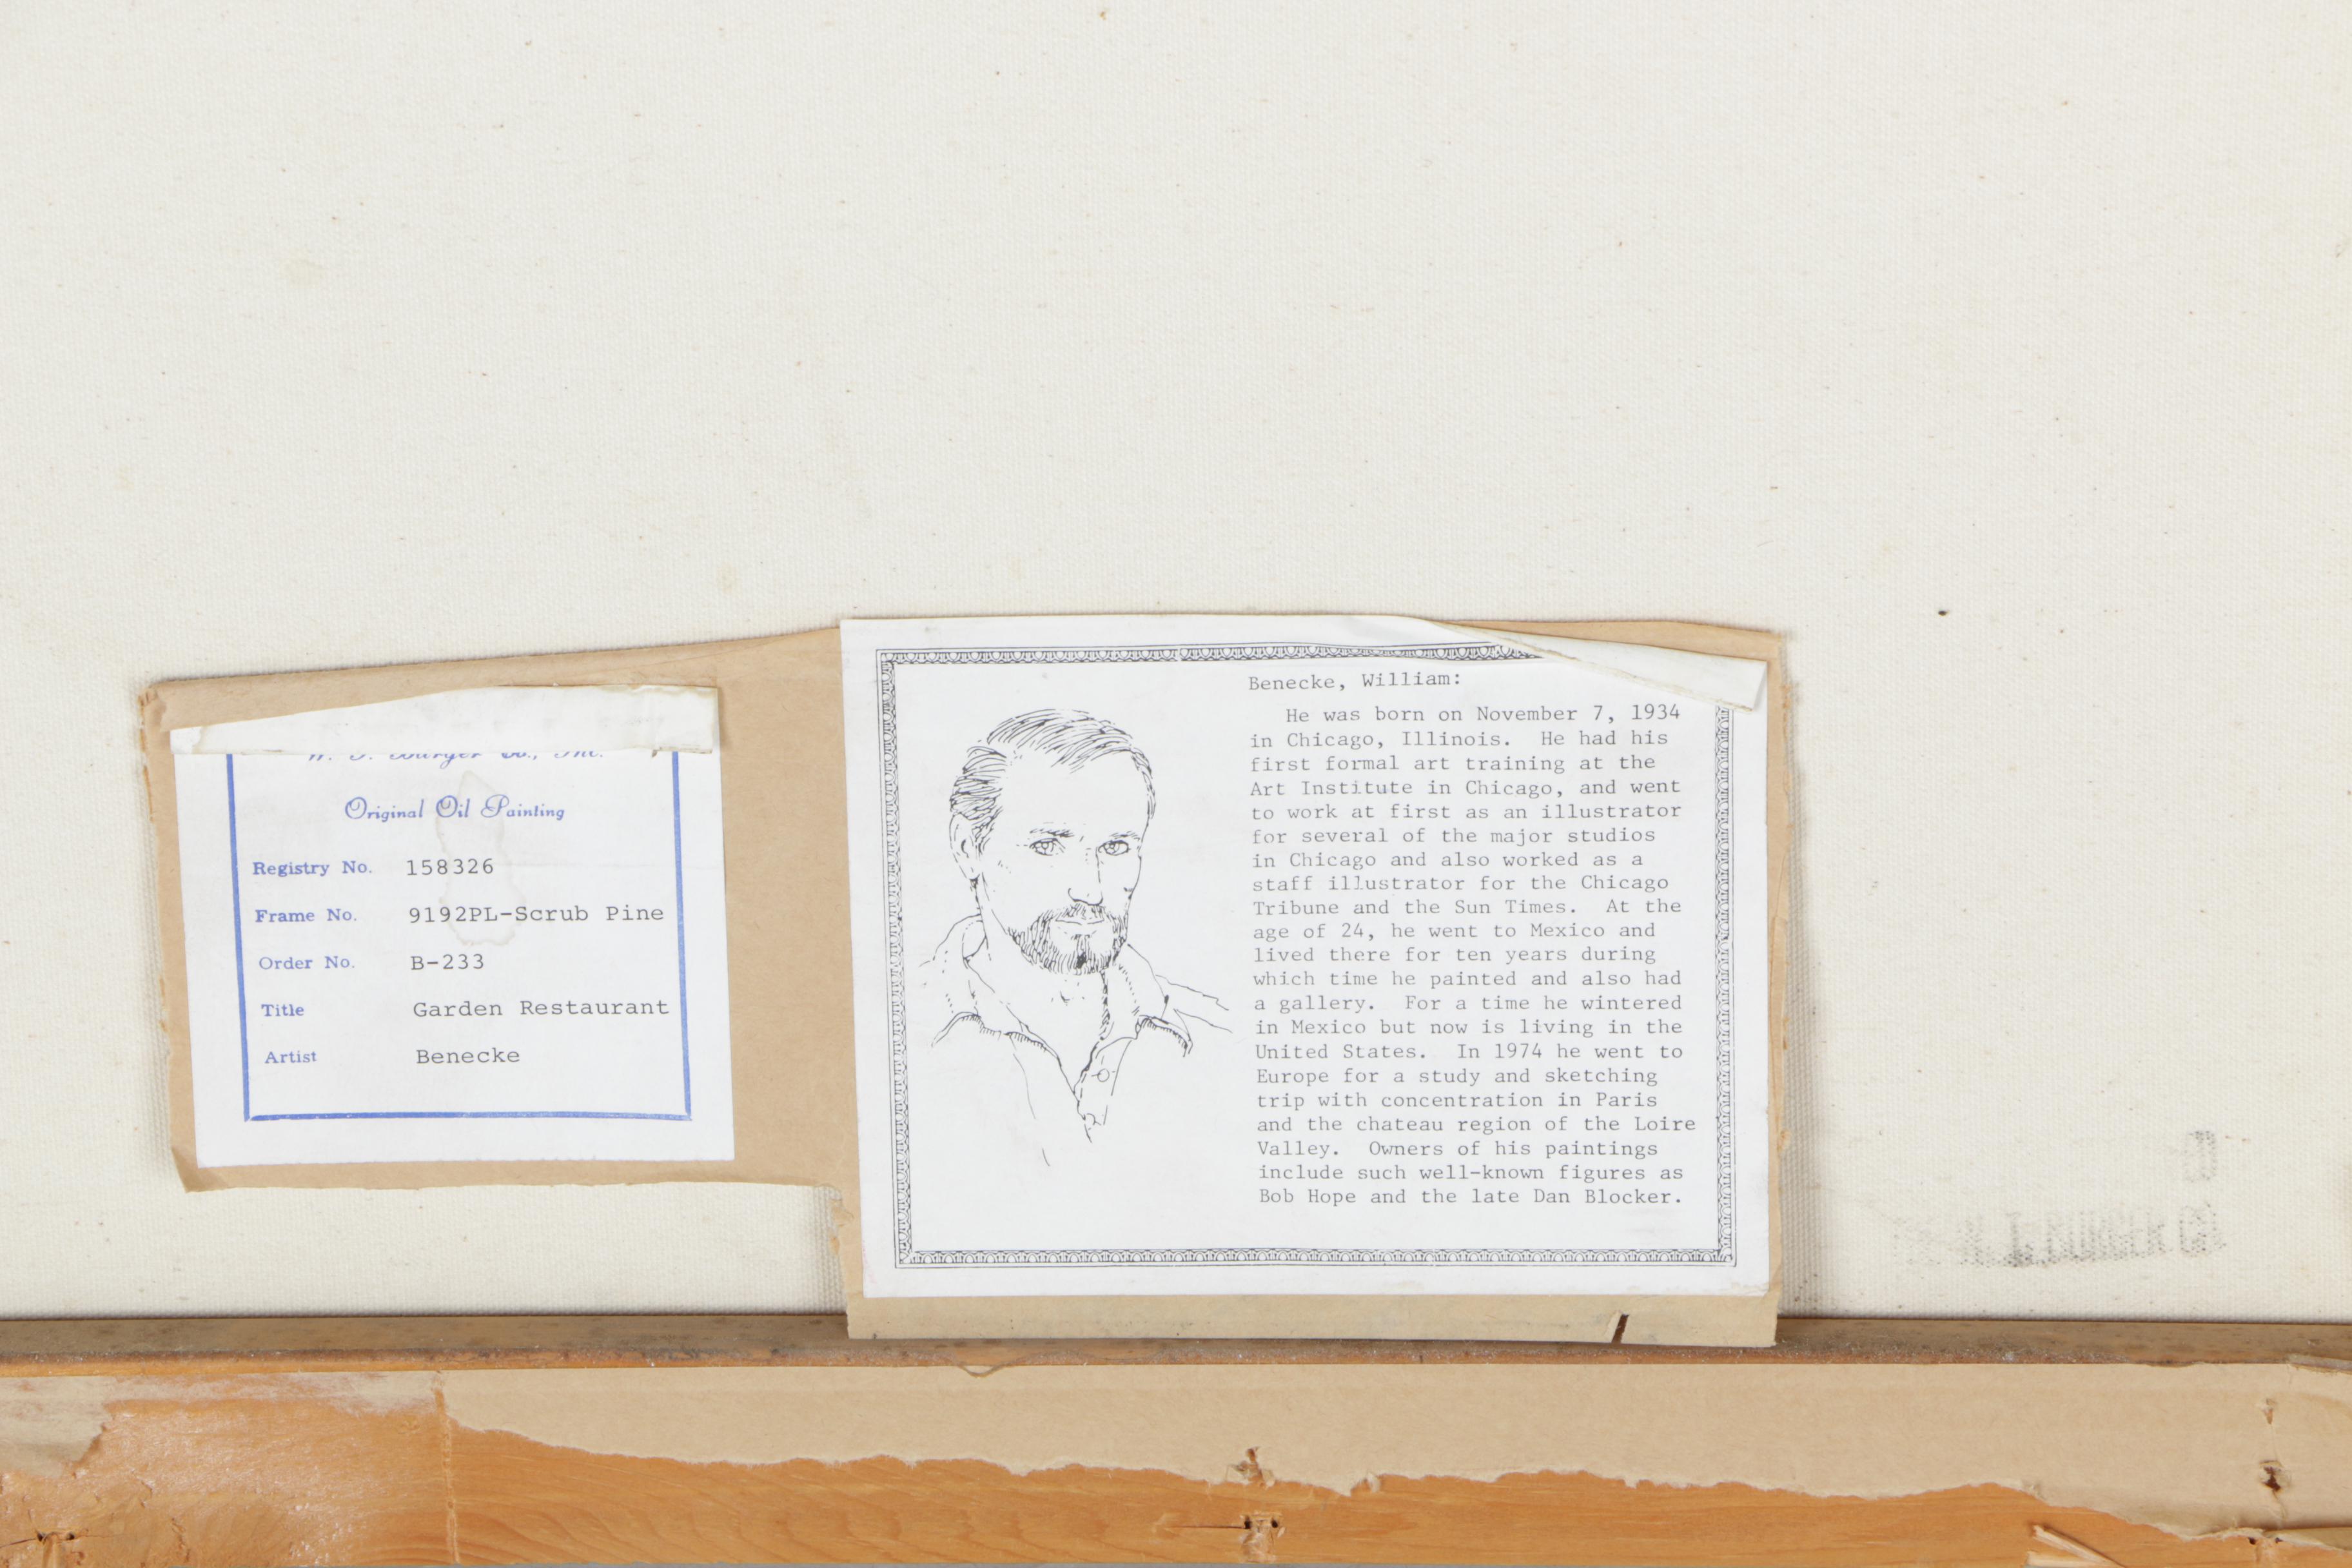 Original Oil Painting
Registry No. 158326
Frame No. 9192PL-Scrub Pine
Order No. B-233
Title Garden Restaurant
Artist Benecke
Benecke, William:
He was born on November 7, 1934
in Chicago, Illinois. He had his
first formal art training at the
Art Institute in Chicago, and went
to work at first as an illustrator
for several of the major studios
in Chicago and also worked as a
staff illustrator for the Chicago
Tribune and the Sun Times. At the
age of 24, he went to Mexico and
lived there for ten years during
which time he painted and also had
a gallery. For a time he wintered
in Mexico but now is living in the
United States. In 1974 he went to
Europe for a study and sketching
trip with concentration in Paris
and the chateau region of the Loire
Valley. Owners of his paintings
include such well-known figures as
Bob Hope and the late Dan Blocker.